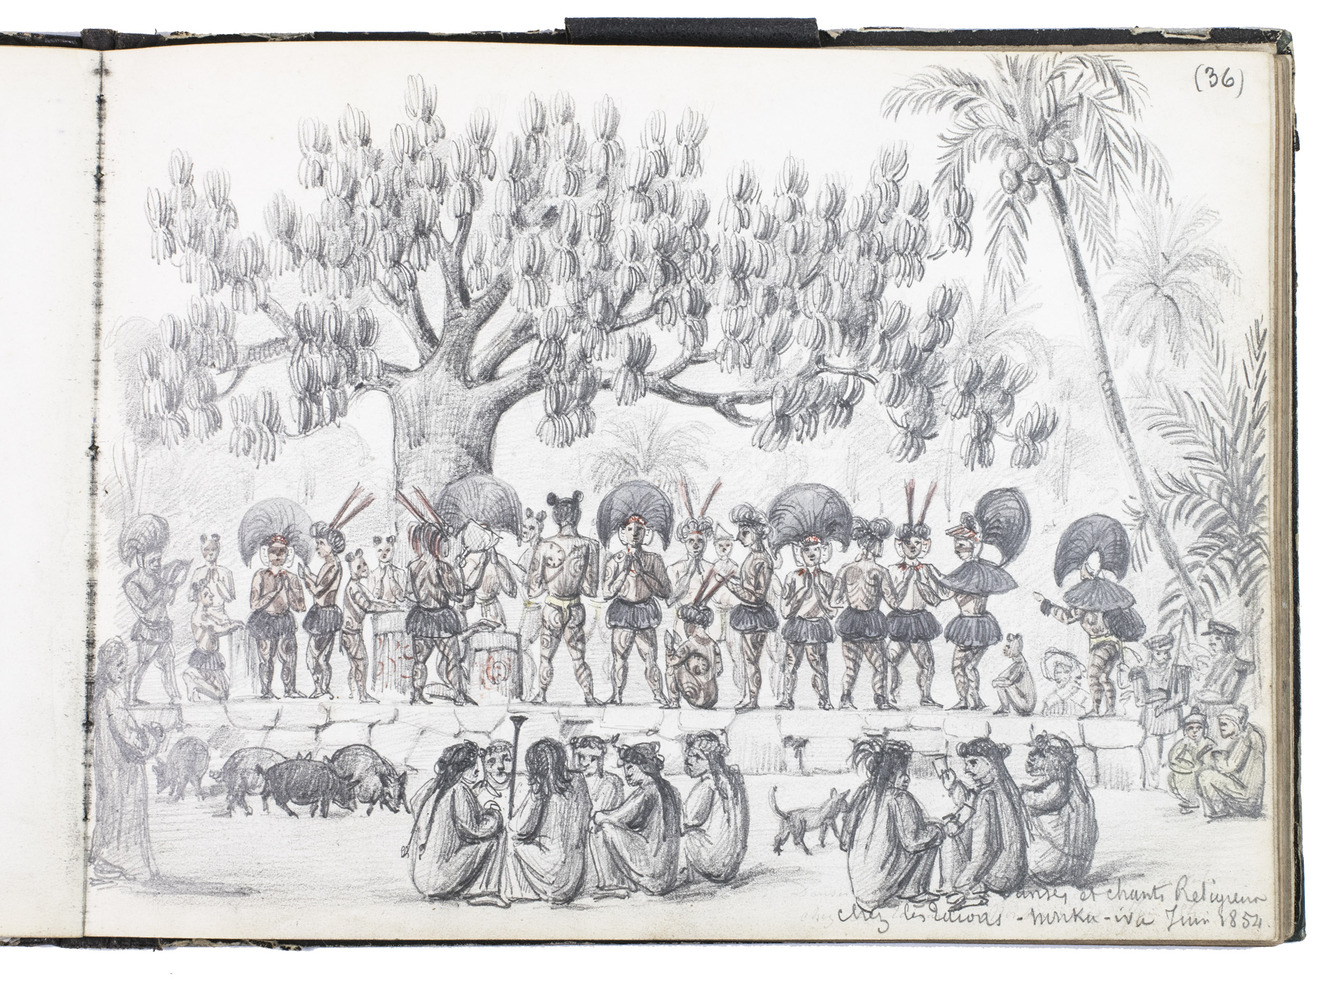 (36)
Danses et chants Religieux
chez les Taioas - Nouka-iva Juin 1854.